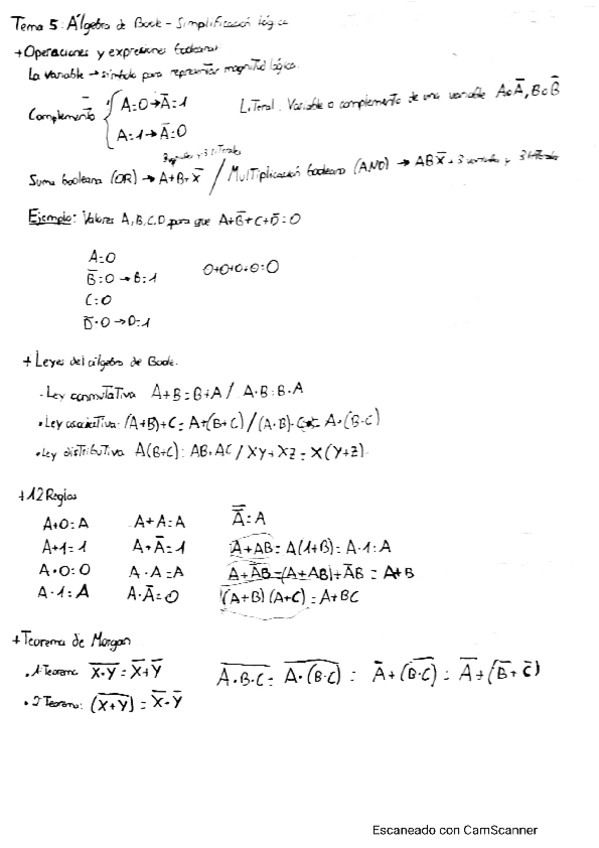 Tema 5: Álgebra de Boole - Simplificación lógica
+ Operaciones y expresiones booleanas
La variable → símbolo para representar magnitud lógica.
Complemento { A=0→A̅=1
A=1→A̅=0
Literal: Variable o complemento de una variable A o A̅, B o B̅
3 variables y 3 literales
Suma booleana (OR) → A+B+X̅ / Multiplicación booleana (AND) → ABX̅ → 3 variables y 3 literales
Ejemplo: Valores A, B, C, D para que A+B̅+C+D̅=0
A=0
B̅=0 → B=1
0+0+0+0=0
C=0
D̅=0 → D=1
+ Leyes del álgebra de Boole.
- Ley conmutativa A+B=B+A / A·B=B·A
• Ley asociativa: (A+B)+C=A+(B+C) / (A·B)·C = A·(B·C)
• Ley distributiva A(B+C)=AB+AC / XY+XZ=X(Y+Z).
+ 12 Reglas
A+0=A A+A=A A̿=A
A+1=1 A+A̅=1 A+AB=A(1+B)=A·1=A
A·0=0 A·A=A A+A̅B=(A+AB)+A̅B=A+B
A·1=A A·A̅=0 (A+B)(A+C)=A+BC
+ Teorema de Morgan
• 1º Teorema X̅·̅Y̅=X̅+Y̅ A̅·̅B̅·̅C̅ = A̅·̅(̅B̅·̅C̅)̅ = A̅+(B̅·̅C̅) = A̅+(B̅+C̅)
• 2º Teorema: (X̅+̅Y̅)=X̅·Y̅
Escaneado con CamScanner